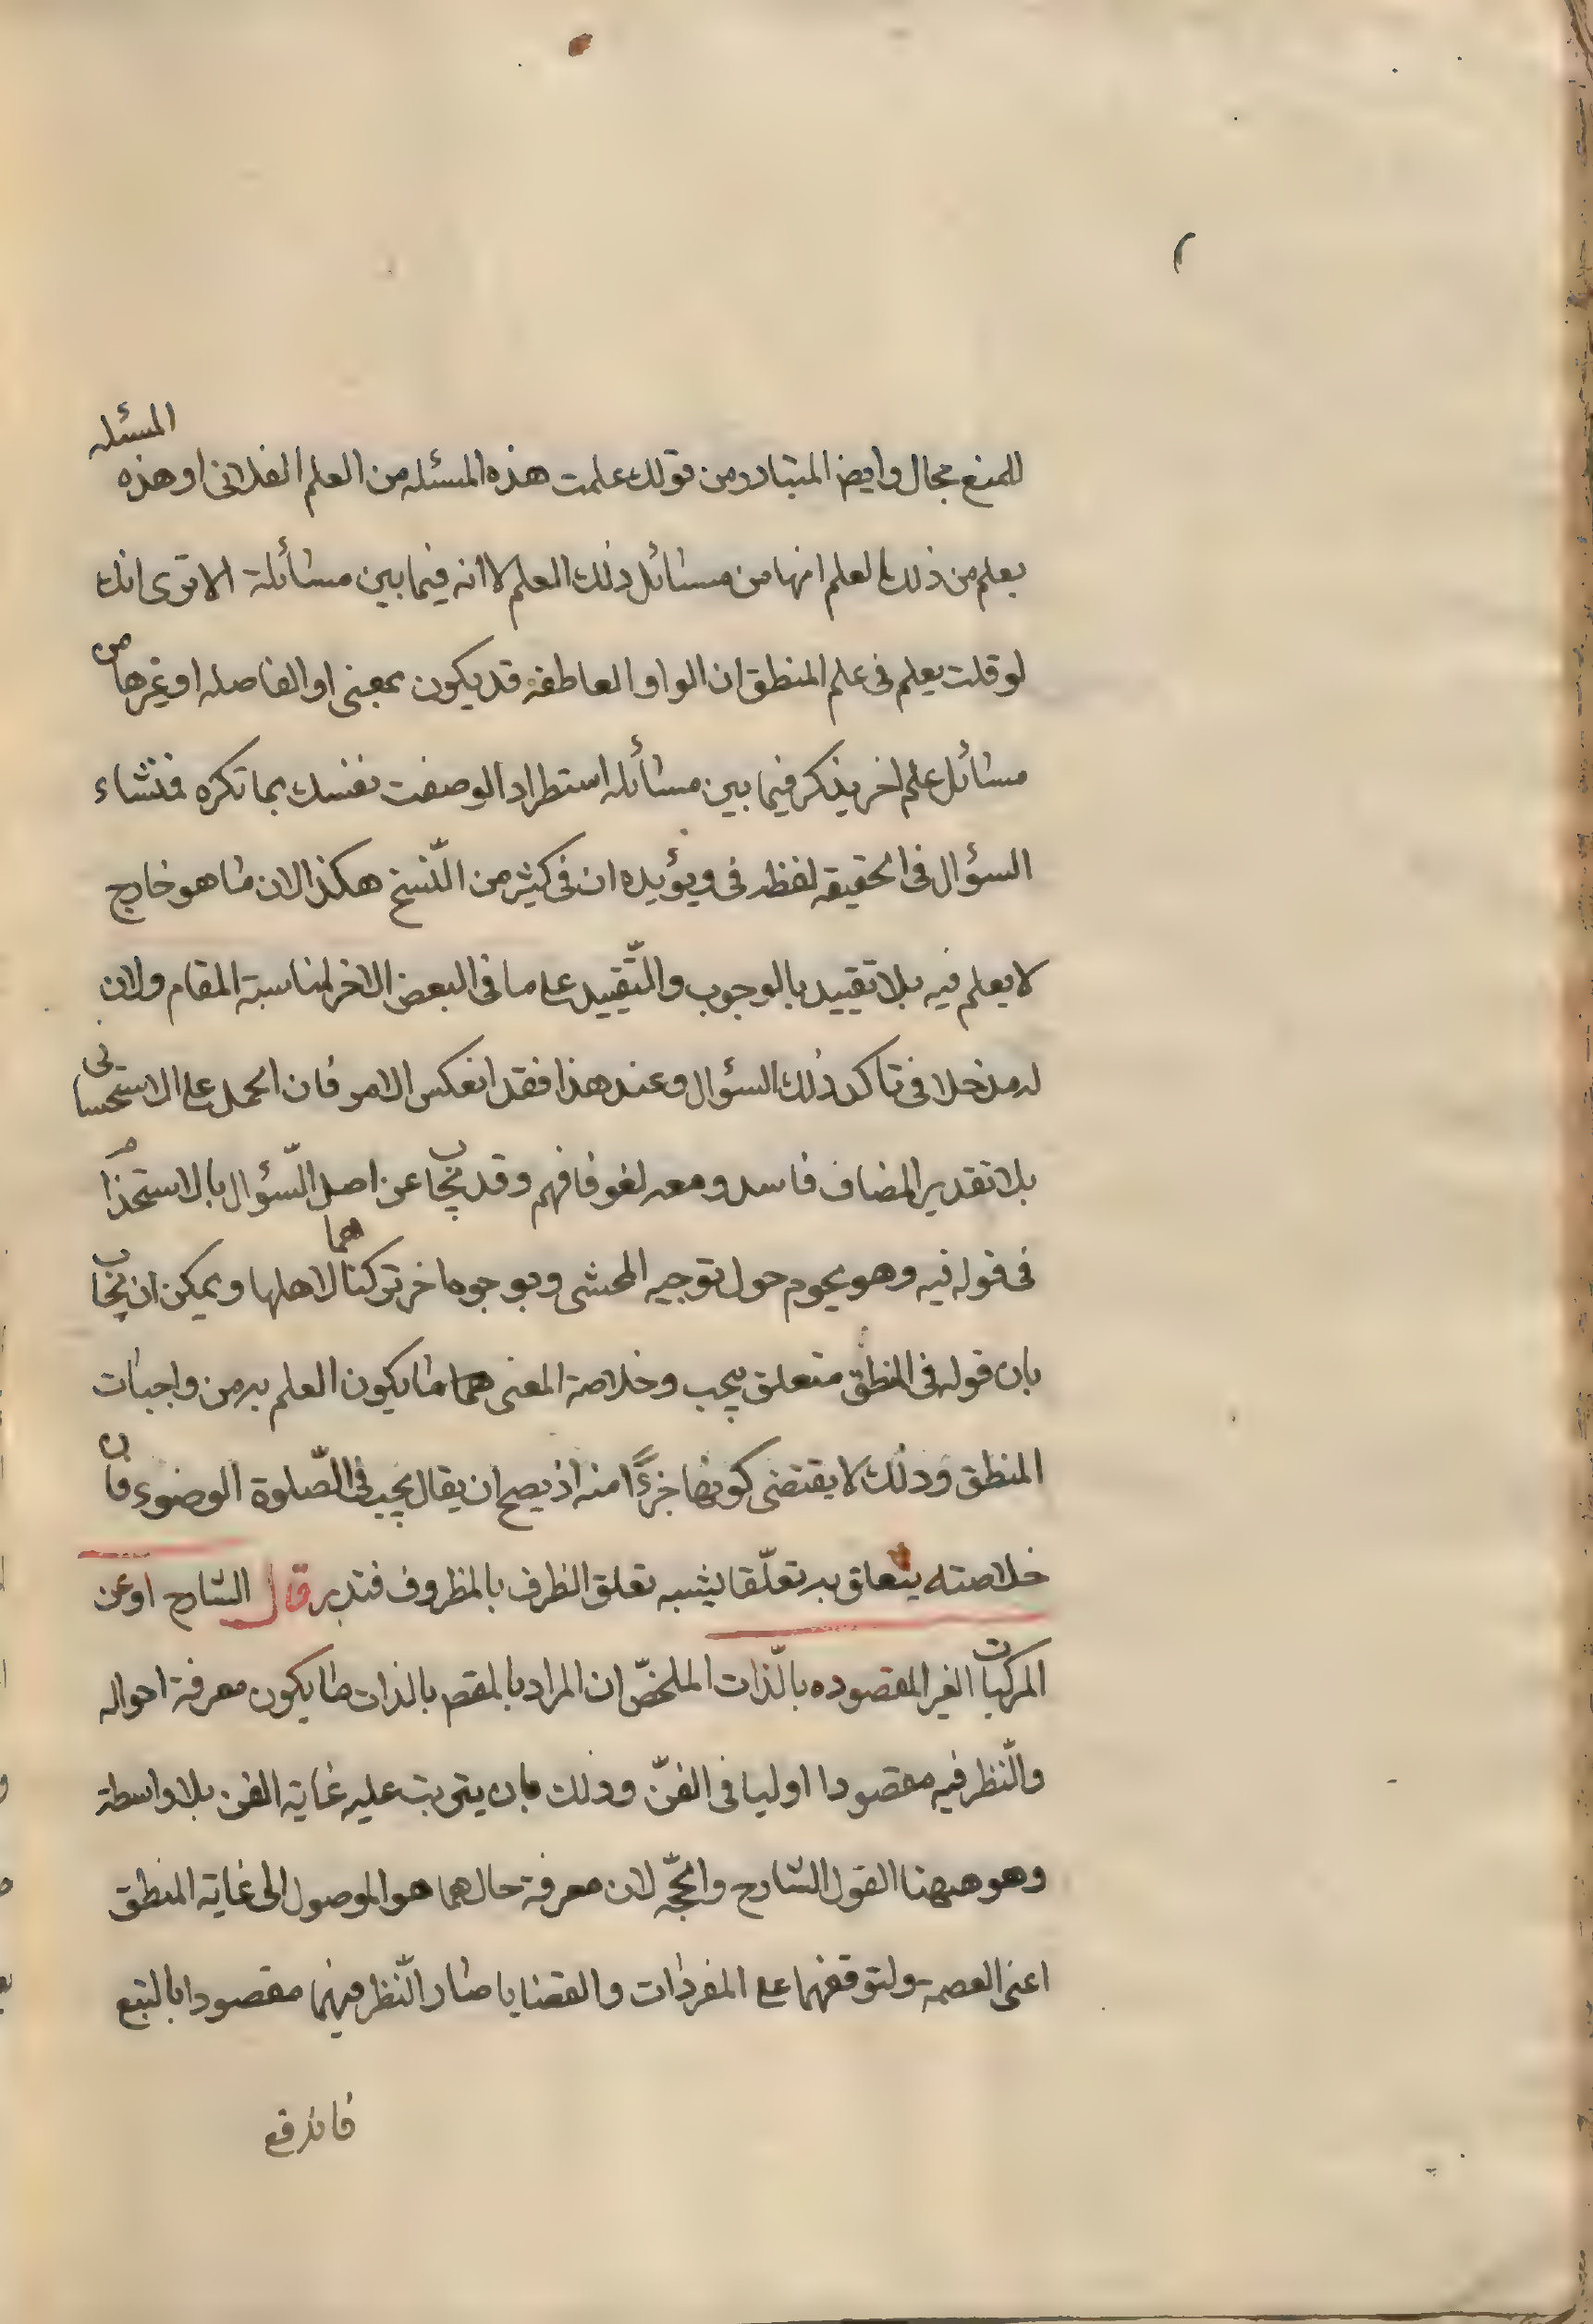 للمنع مجال وايض المتبادر من قولك علمت هذه المسئله من العلم الفلانى او هذه المسئله
يعلم من ذلك العلم انها من مسائل ذلك العلم لا انه فيما بين مسائلة الا ترى انك
لو قلت يعلم فى علم المنطق ان الواو العاطفه قد يكون بمعنى او الفاصله او غيرها من
مسائل علم اخر يذكر فيما بين مسائله استطرادا لوصفت نفسك بما تكره فمنشاء
السؤال فى الحقيقه لفظ فى ويؤيده ان فى كثير من النّسخ هكذا لان ما هو خارج
لا يعلم فيه بلا تقييد بالوجوب والتّقييد على ما فى البعض الاخر لمناسبة المقام ولان
له مدخلا فى تاكد ذلك السؤال وعند هذا فقد انعكس الامر فان الحمل على الاستحسانى
بلا تقدير المضاف فاسد ومعه لغو فافهم وقد يجاب عن اصل السّؤال بالاستخدام
فى قوله فيه وهو يحوم حول توجيه المحشى وبوجوه اخر تركناهما لاهلها ويمكن ان يجاب
بان قوله فى المنطق متعلق بيجب وخلاصة المعنى هما ما يكون العلم به من واجبات
المنطق وذلك لا يقتضى كونها جزءًا منه اذ يصح ان يقال يجب فى الصّلوة الوضوء فان
خلاصته يتعلق به تعلّقا يشبه تعلق الظرف بالمظروف فتدبر قال الشارح او عن
المركبات الغير المقصوده بالذّات الملخّص ان المراد بالمقصم بالذات ما يكون معرفة احواله
والنّظر فيه مقصودا اوليا فى الفنّ وذلك بان يترتب عليه غاية الفن بلا واسطة
وهو ههنا القول الشارح والحجّه لان معرفة حالهما هو الموصول الى غاية المنطق
اعنى العصمة ولتوقفهما على المفردات والقضايا صار النّظر فيهما مقصودا بالتبع